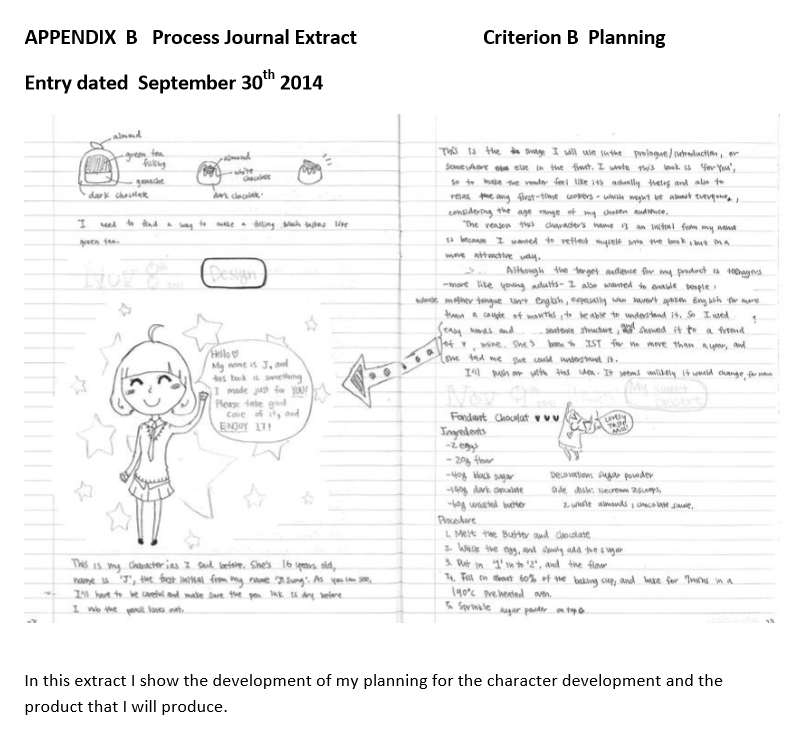 APPENDIX B Process Journal Extract
Criterion B Planning
Entry dated September 30th 2014
almond
green tea
filling
ganache
dark chocolate
almond
white
chocolate
dark chocolate
I need to find a way to make a filling which tastes like
green tea.
Nov 8th
Design
Hello ♡
My name is J, and
this book is something
I made just for YOU!
Please take good
care of it, and
ENJOY IT!
This is my character (as I said before. She's 16 years old,
name is 'J', the first initial from my name. As you can see,
I'll have to be careful and make sure the pen ink is dry before
I rub the pencil lines out.
This is the image I will use in the prologue/introduction, or
somewhere else in the front. I wrote this book is 'for You',
so to make the reader feel like its actually theirs and also to
relax any first-time cookers - which might be almost everyone,
considering the age range of my chosen audience.
The reason this character's name is an initial from my name
is because I wanted to reflect myself into the book, but in a
more attractive way.
Although the target audience for my product is teenagers
-more like young adults- I also wanted to enable people
whose mother tongue isn't English, especially who haven't spoken English for more
than a couple of months, to be able to understand it. So I used
easy words and sentence structure, and showed it to a friend
of mine. She's been to IST for no more than a year, and
she told me she could understand it.
I'll push on with this idea. It seems unlikely it would change, for now
Nov 9th
My sweet
Dessert
Fondant Chocolat ♥♥♥
Lovely
Ingredients
-2 eggs
- 20g flour
-40g black sugar
-140g dark chocolate
-60g unsalted butter
Decoration: sugar powder
Side dish: icecream 2scoops,
2 whole almonds, chocolate sauce.
Procedure
1. Melt the Butter and Chocolate
2. Whisk the egg, and slowly add the sugar
3. Put in '1' into '2', and the flour
4. Fill in about 60% of the baking cup, and bake for in a
190°c preheated oven.
5. Sprinkle sugar powder on top
In this extract I show the development of my planning for the character development and the
product that I will produce.